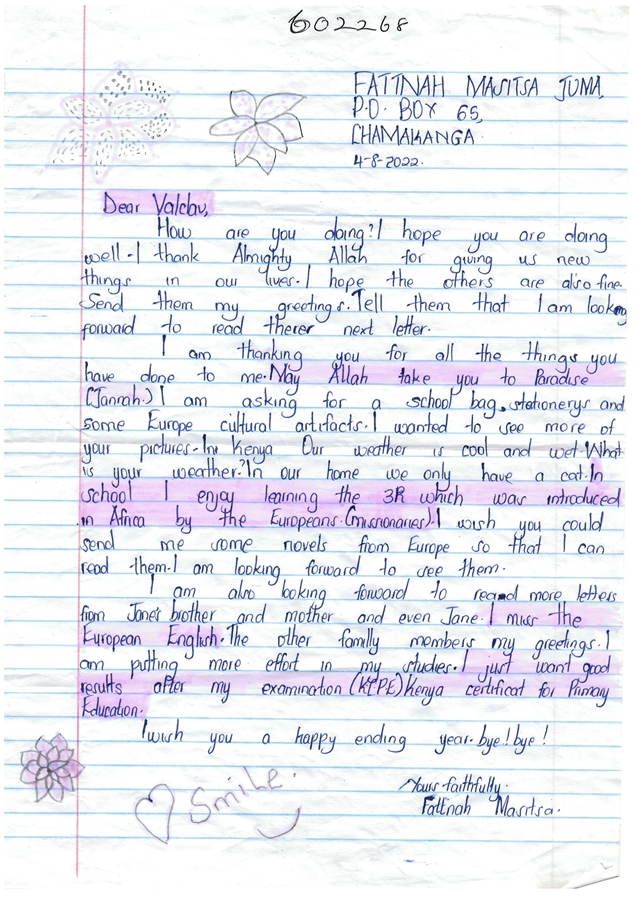 602268
FATINAH MASITSA JUMA,
P.O. BOX 65,
CHAMAKANGA.
4-8-2022.
Dear Valclav,
How are you doing? I hope you are doing
well. I thank Almighty Allah for giving us new
things in our lives. I hope the others are also fine.
Send them my greetings. Tell them that I am looking
forward to read therer next letter.
I am thanking you for all the things you
have done to me. May Allah take you to Paradise
(Jannah.) I am asking for a school bag, stationerys and
some Europe cultural artifacts. I wanted to see more of
your pictures. In Kenya Our weather is cool and wet. What
is your weather? In our home we only have a cat. In
school I enjoy learning the 3R which was introduced
in Africa by the Europeans. (missionaries). I wish you could
send me some novels from Europe so that I can
read them. I am looking forward to see them.
I am also looking forward to read more letters
from Jane's brother and mother and even Jane. I miss the
European English. The other familly members my greetings. I
am putting more effort in my studies. I just want good
results after my examination (KCPE) Kenya certificat for Primary
Education.
I wish you a happy ending year. bye! bye!
Smile.
Yours faithfully.
Fatinah Masitsa.